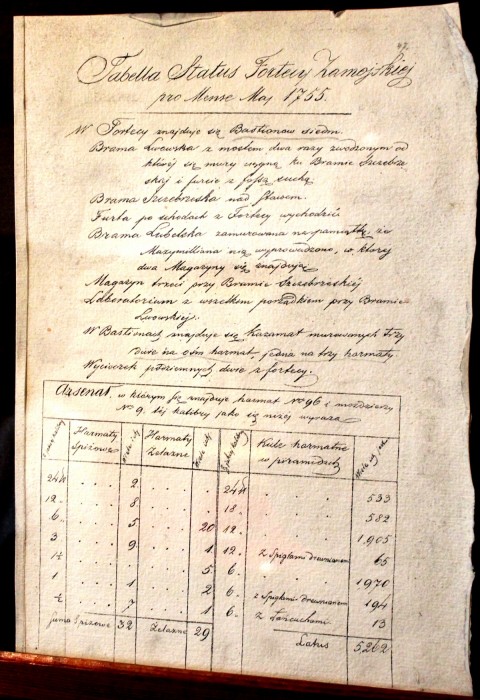 47.
Tabella Status Fortecy Zamojskiej
pro Mense Maj 1755.
W Fortecy znajduje się Bastionow siedm.
Brama Lwowska z mostem dwa razy zwodzonym od
której się mury ciągną ku Bramie Szczebrze
skiej i furcie z fossą suchą.
Brama Szczebreska nad Stawem.
Furta po schodach z Fortecy wychodzić
Brama Lubelska zamurowana na pamiątkę, że
Maxymiliana nią wyprowadzono, w której
dwa Magazyny się znajdują
Magazyn trzeci przy Bramie Szczebrzeskiej
Laboratorium z wszelkim porządkiem przy Bramie
Lwowskiej.
W Bastionach znajduje się Kazamat murowanych trzy
dwie na ośm harmat, jedna na trzy harmaty.
Wycieczek podziemnych dwie z fortecy.
Arsenał, w którym się znajduje harmat No 96 i mozdzierzy
No 9, tej kalibry jako się niżej wyraża
Harmaty Spiżowe Harmaty Żelazne Kule harmatne w piramidach
24 2 24 533
12 8 18 582
6 5 20 12 1,905
3 9 1 12 z Spigłami drewnianemi 65
5 6 1970
1 1 2 6 z Spigłami drewnianemi 194
7 1 6 z Łańcuchami 13
Suma Spiżowe 32 Żelazne 29 Latus 5,262